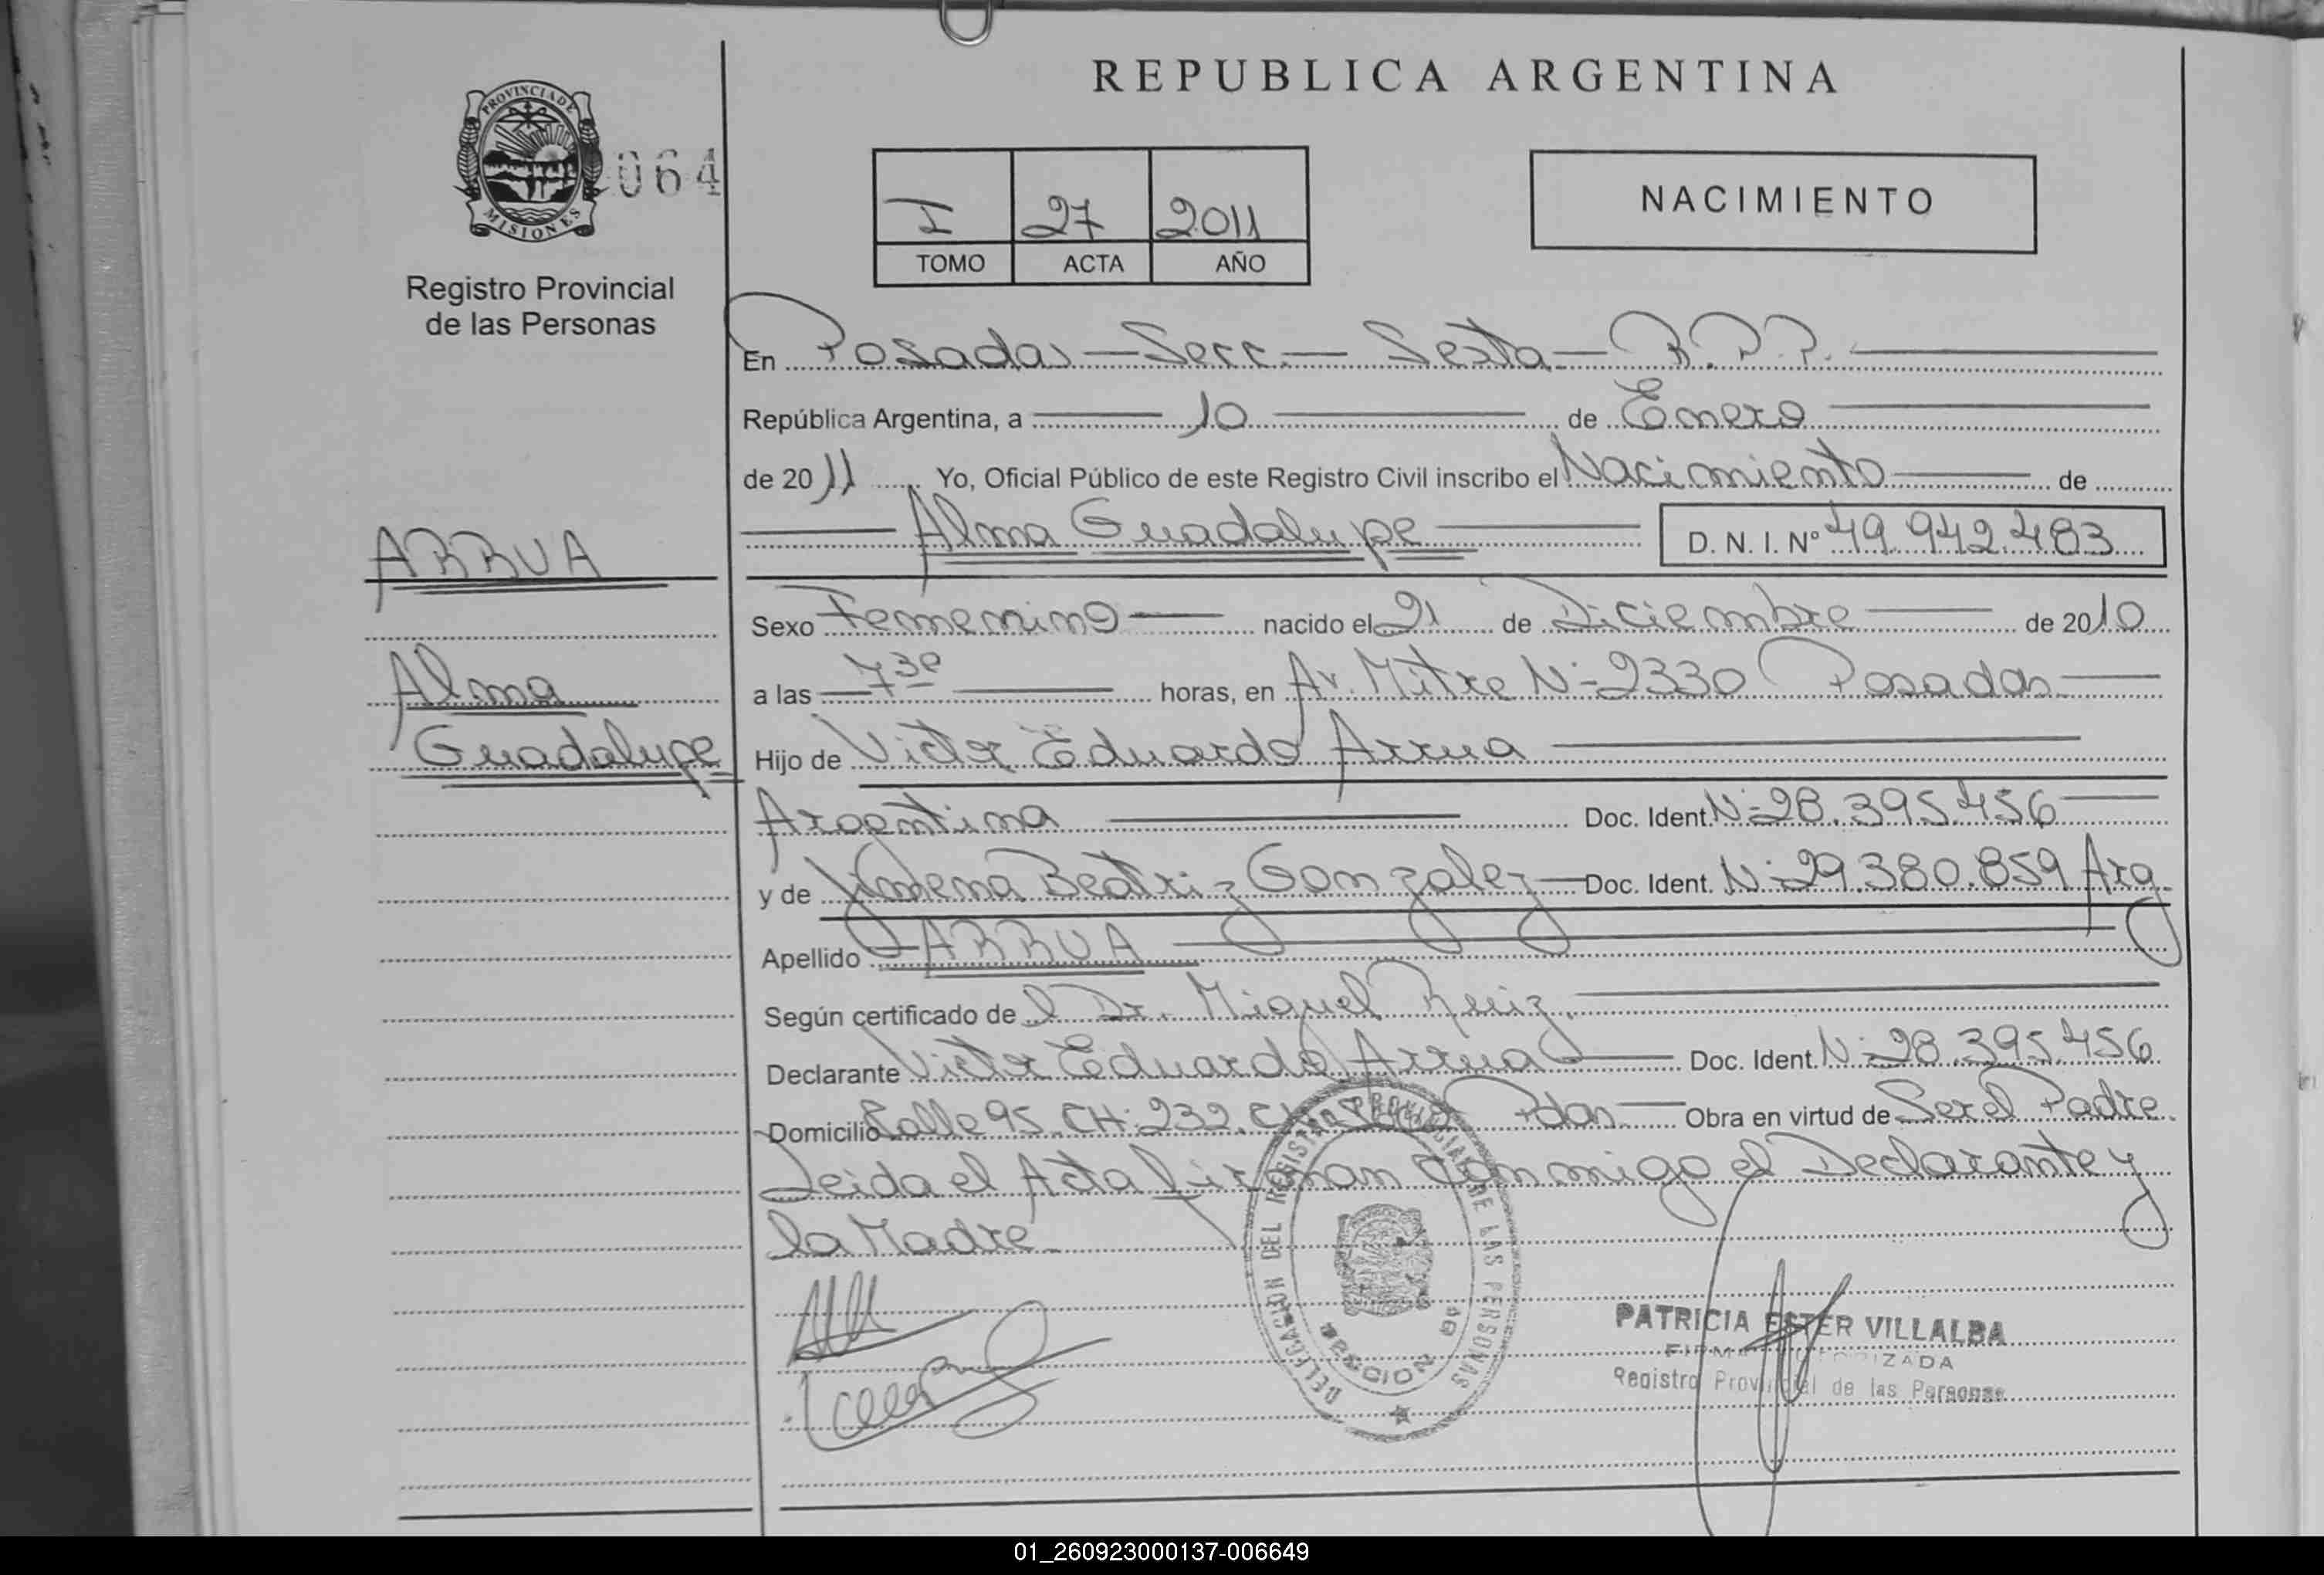 REPUBLICA ARGENTINA
PROVINCIA DE
MISIONES
064
Registro Provincial
de las Personas
I 27 2011
TOMO ACTA AÑO
NACIMIENTO
En Posadas - Secc. - Sexta - R.P.P.
República Argentina, a 10 de Enero
de 2011 Yo, Oficial Público de este Registro Civil inscribo el Nacimiento de
Alma Guadalupe D. N. I. Nº 49.942.483
ARRUA
Alma
Guadalupe
Sexo Femenino nacido el 21 de Diciembre de 2010
a las 7 30 horas, en Av. Mitre Nº 2330 Posadas
Hijo de Victor Eduardo Arrua
Argentina Doc. Ident. Nº 28.395.456
y de Beatriz Gonzalez Doc. Ident. Nº 29.380.859 Arg.
Apellido ARRUA
Según certificado de l Dr. Miguel Ruiz.
Declarante Victor Eduardo Arrua Doc. Ident. Nº 28.395.456
Domicilio Calle 95 CH: 232. Pdas. Obra en virtud de Ser el Padre
Leida el Acta firman conmigo el Declarante y
la Madre.
DELEGACION DEL REGISTRO PROVINCIAL DE LAS PERSONAS
SECCION 6ª
PATRICIA ESTER VILLALBA
FIRMA AUTORIZADA
Registro Provincial de las Personas
01_260923000137-006649